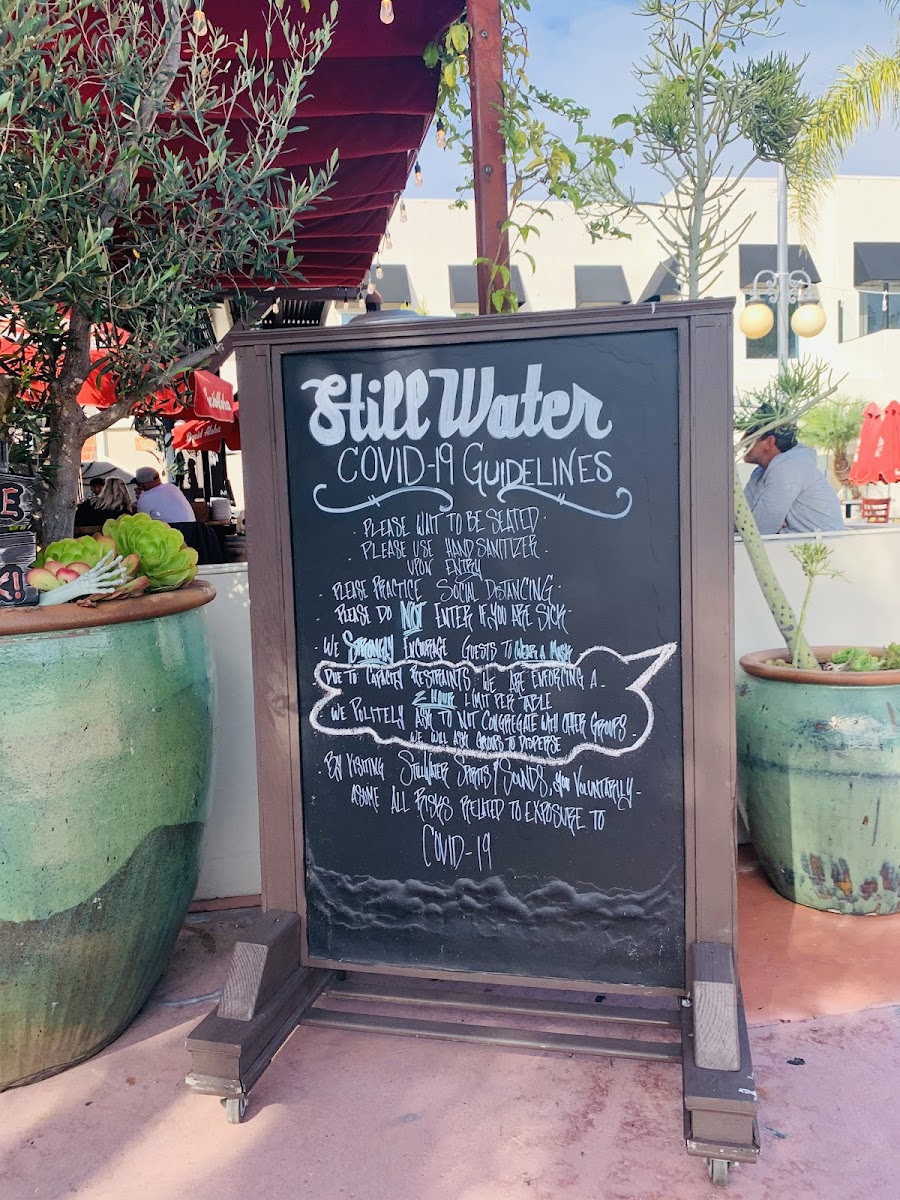 Still Water
COVID-19 GUIDELINES
· PLEASE WAIT TO BE SEATED ·
· PLEASE USE HAND SANITIZER ·
UPON ENTRY
· PLEASE PRACTICE SOCIAL DISTANCING ·
· PLEASE DO NOT ENTER IF YOU ARE SICK ·
· WE STRONGLY ENCOURAGE GUESTS TO WEAR A MASK
DUE TO CAPACITY RESTRAINTS, WE ARE ENFORCING A
2 HOUR LIMIT PER TABLE
WE POLITELY ASK TO NOT CONGREGATE WITH OTHER GROUPS
WE WILL ASK GROUPS TO DISPERSE
· BY VISITING STILLWATER SPIRITS & SOUNDS, YOU VOLUNTARILY
ASSUME ALL RISKS RELATED TO EXPOSURE TO
COVID-19